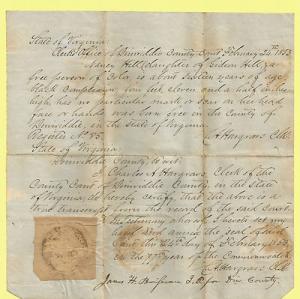 State of Virginia
Clerk's Office of Dinwiddie County Court February 24th 1853
Nancy Hill (daughter of Gideon Hill) a
free person of Color, is about sixteen years of age
black Complexion, four feet eleven and a half inches
high, has no particular mark or scar on her head
face or hands was born free in the County of
Dinwiddie, in the State of Virginia.
Register No.
Hargrave Clk.
State of Virginia
Dinwiddie County to wit:
I Charles A Hargrave, Clerk of the
County Court of Dinwiddie County, in the State
of Virginia do hereby certify that the above is a
true transcript from the record of the said Court.
In testimony whereof I hereto set my
hand and annex the seal of said
Court this 24th day of February 1853
in the 77th year of the Commonwealth
Hargrave Clk
James H. J.P. for Din. County.